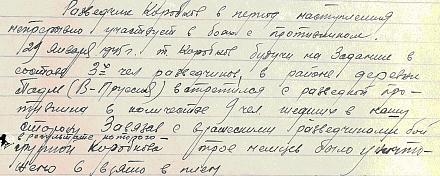 Разведчик Коробков в период наступления
непрерывно участвует в боях с противником.
29 января 1945 г. т. Коробков будучи на задании в
составе 3х чел разведчиков, в районе деревни
(В-Пруссия) встретился с разведкой про-
тивника в количестве 9 чел. шедших в нашу
сторону Завязав с вражескими разведчиками бой
в результате которого
группой Коробкова трое немцев было уничто-
жено 6 взято в плен